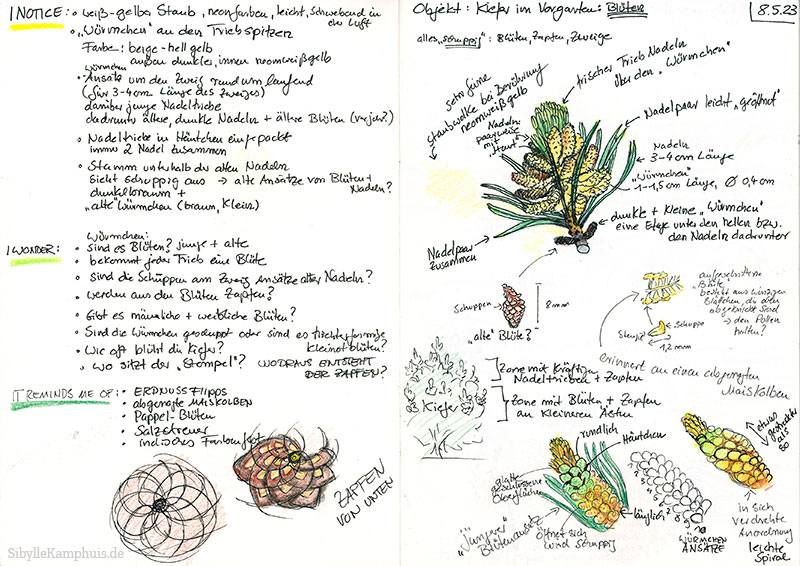 I NOTICE:
• weiß-gelber Staub, neonfarben, leicht, schwebend in der Luft
• "Würmchen" an den Triebspitzen
Farbe: beige-hellgelb
außen dunkler, innen neonweißgelb
Würmchen
• Ansatz um den Zweig rundum laufend
(für 3-4 cm Länge des Zweiges)
darüber junge Nadeltriebe
darunter ältere, dunkle Nadeln + ältere Blüten (vorjahr?)
• Nadeltriebe in Häutchen eingepackt
immer 2 Nadel zusammen
• Stamm unterhalb der alten Nadeln
sieht schuppig aus → alte Ansätze von Blüten + Nadeln?
dunkelbraun +
"alte" Würmchen (braun, klein)
I WONDER:
Würmchen:
• sind es Blüten? junge + alte
• bekommt jeder Trieb eine Blüte
• sind die Schuppen am Zweig Ansätze alter Nadeln?
• werden aus den Blüten Zapfen?
• Gibt es männliche + weibliche Blüten?
• Sind die Würmchen geschuppt oder sind es tischförmige Kleinstblüten?
• Wie oft blüht die Kiefer?
• wo sitzt der "Stempel"? WORAUS ENTSTEHT DER ZAPFEN?
IT REMINDS ME OF:
• ERDNUSSFLIPPS
• abgenagte MAISKOLBEN
• Pappel-Blüten
• Salzstreuer
• indisches Farbenfest
ZAPFEN
VON UNTEN
SibylleKamphuis.de
Objekt: Kiefer im Vorgarten: Blüten
8.5.23
alles "schuppig": Blüten, Zapfen, Zweige
sehr feine
Staubwolke bei Berührung
neonweißgelb
frischer Trieb Nadeln
über den "Würmchen"
Nadeln
paarweise
mit
"Haut"
Nadelpaar leicht "geöffnet"
Nadeln
3-4 cm Länge
"Würmchen"
1-1,5 cm Länge, Ø 0,4 cm
dunkle + kleine "Würmchen"
eine Etage unter den hellen bzw.
den Nadeln darunter
Nadelpaar
zusammen
Schuppen
8 mm
"alte" Blüte?
aufgeschnittene
"Blüte"
besteht aus winzigen
Blättchen, die oben
abgeknickt sind
→ den Pollen
halten?
Schuppe
Stengel
1,2 mm
erinnert an einen abgenagten
Maiskolben
Kiefer
Zone mit kräftigen
Nadeltrieben + Zapfen
Zone mit Blüten + Zapfen
an kleineren Ästen
rundlich
Häutchen
glatte
geschlossene
Oberflächen
länglich
"Jüngerer"
Blütenansatz
öffnet sich
wird schuppig
1
2
3
4
5
WÜRMCHEN
ANSÄTZE
etwas
gestreckter
als
so
in sich
verdrehte
Anordnung
leichte
Spirale